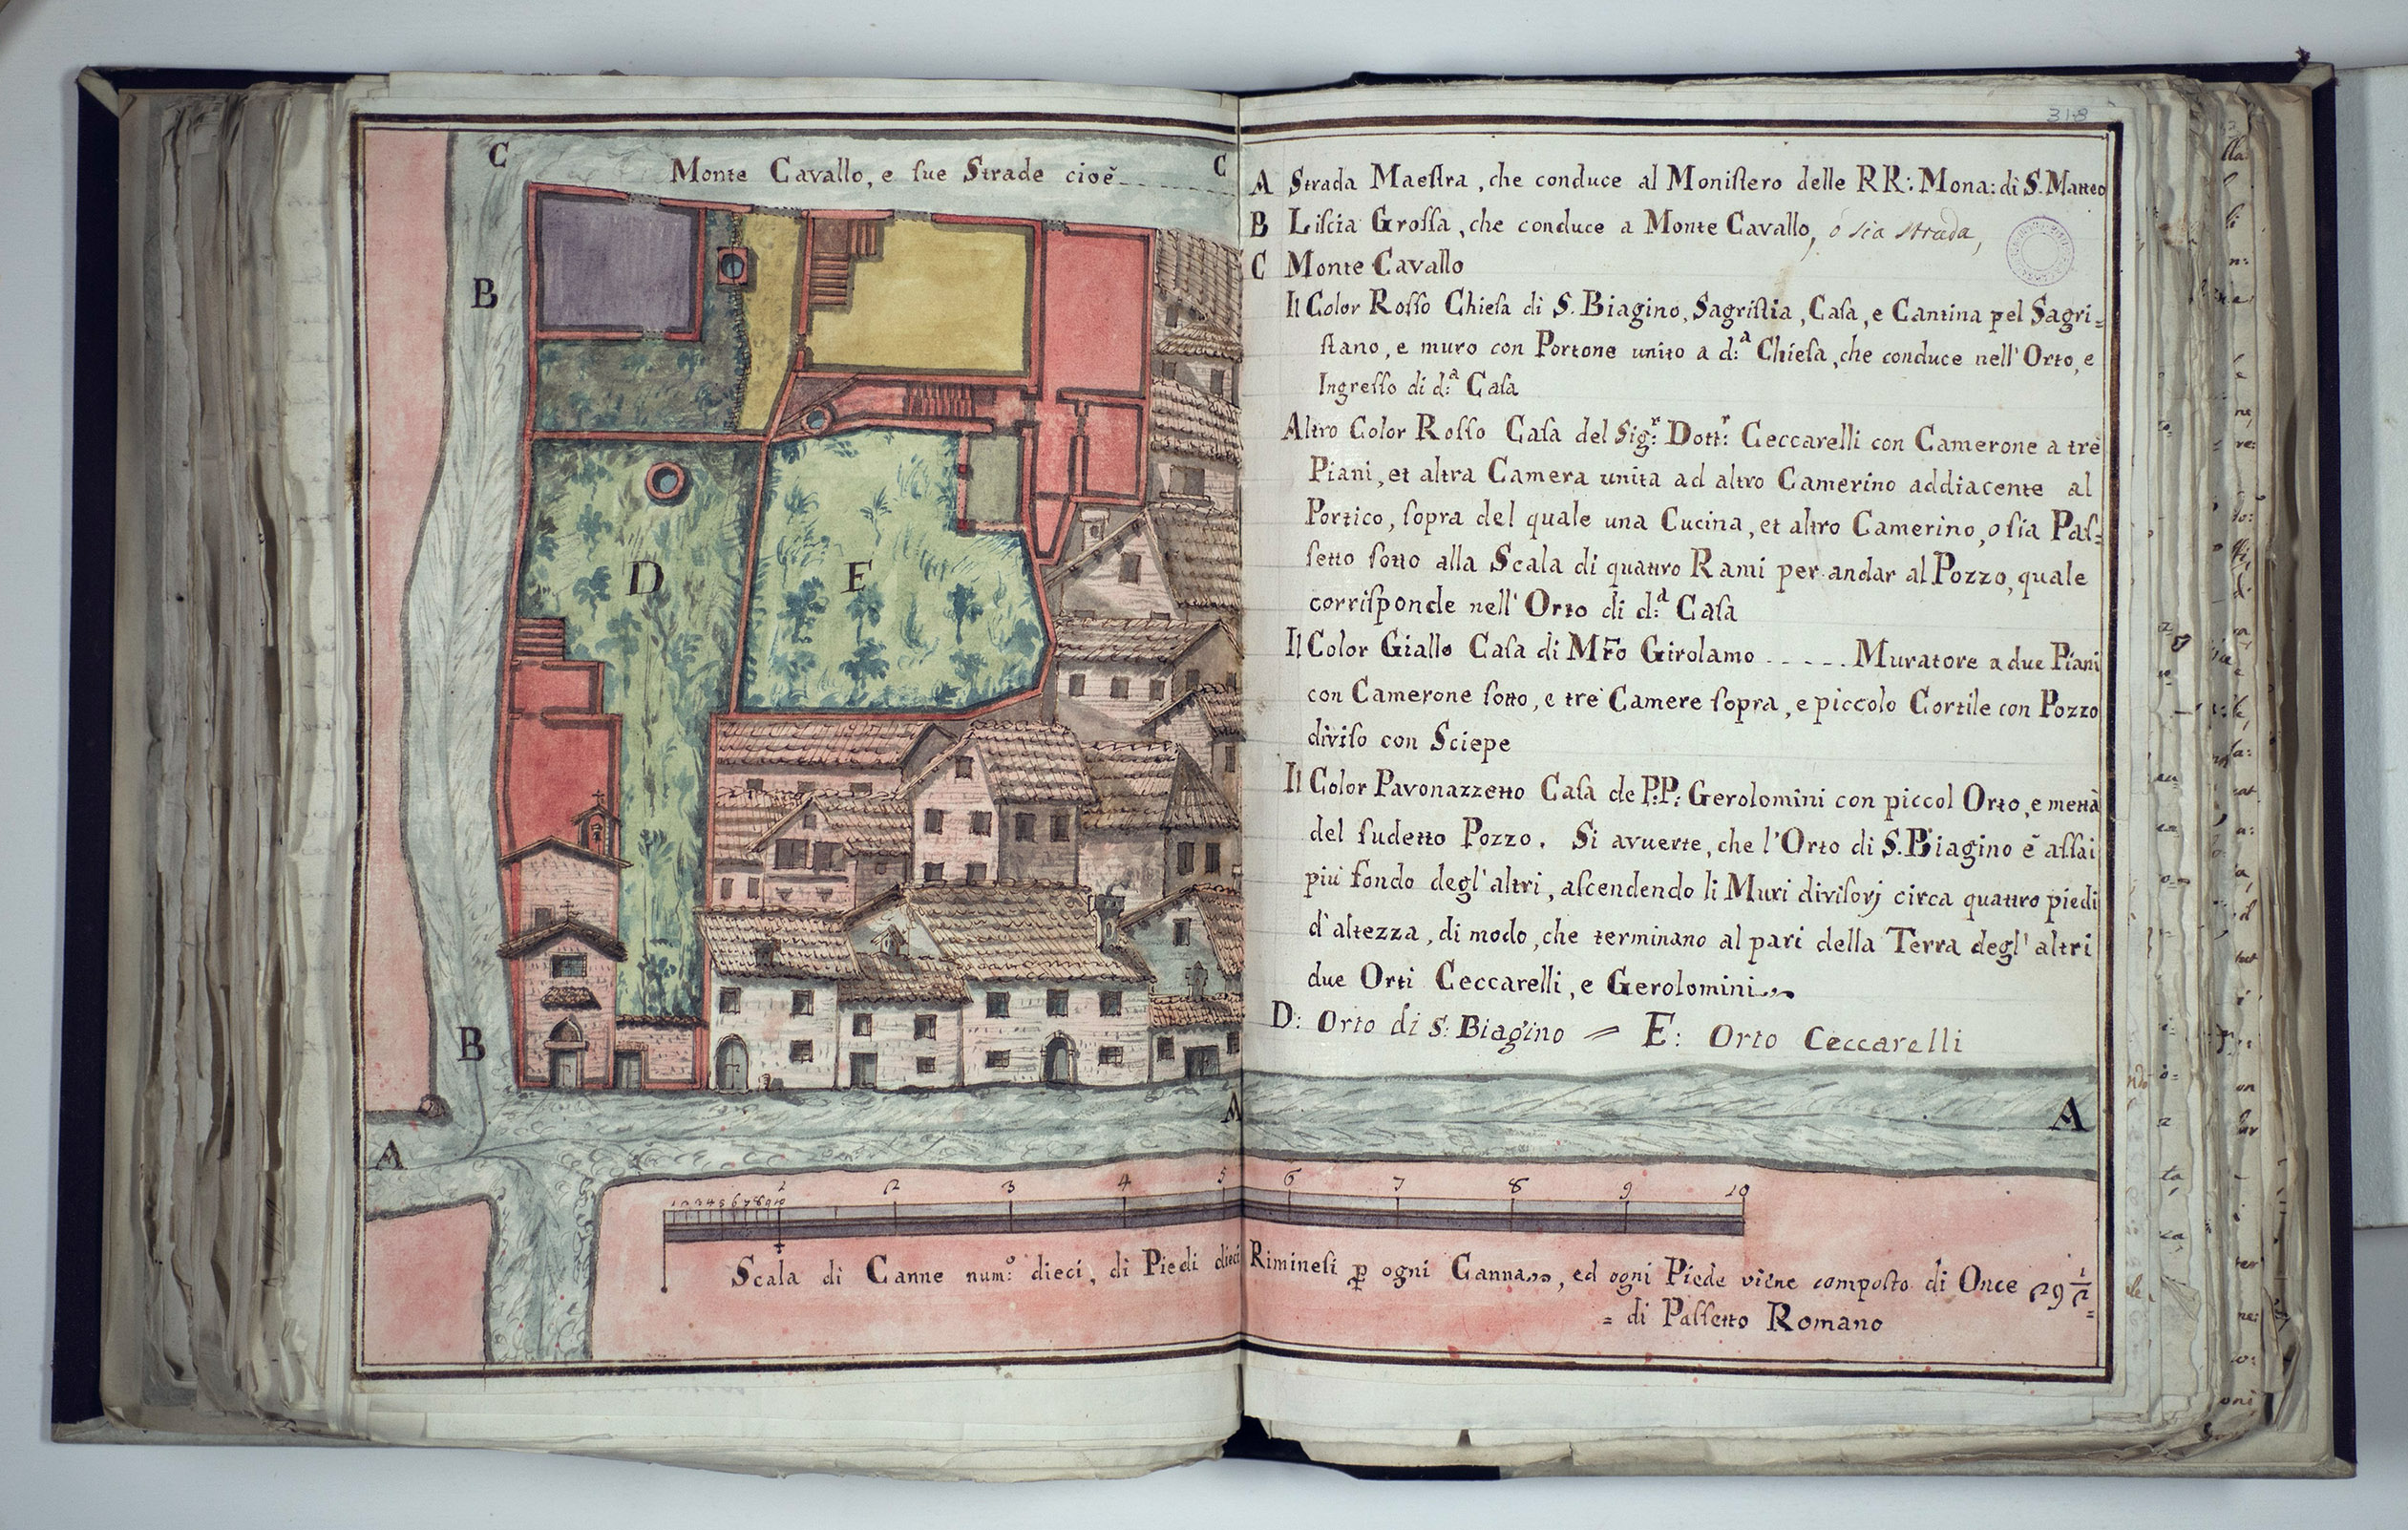 C
C
Monte Cavallo, e ſue Strade cioè
B
D
E
B
A
A
1 2 3 4 5 6 7 8 9 10
2 3 4 5
Scala di Canne num:º dieci, di Piedi dieci
318
A Strada Maeſtra, che conduce al Moniſtero delle RR: Mona: di S. Matteo
B Liſcia Groſſa, che conduce a Monte Cavallo, ó sia strada,
C Monte Cavallo
Il Color Roſſo Chieſa di S. Biagino, Sagriſtia, Caſa, e Cantina pel Sagri=
ſtano, e muro con Portone unito a d:ª Chieſa, che conduce nell' Orto, e
Ingreſſo di d:ª Caſa
Altro Color Roſſo Caſa del Sig:r Dott:r Ceccarelli con Camerone a trè
Piani, et altra Camera unita ad altro Camerino addiacente al
Portico, ſopra del quale una Cucina, et altro Camerino, o ſia Paſ=
ſetto ſotto alla Scala di quattro Rami per andar al Pozzo, quale
corriſponde nell' Orto di d:ª Caſa
Il Color Giallo Caſa di Mro Girolamo ..... Muratore a due Piani
con Camerone ſotto, e trè Camere ſopra, e piccolo Cortile con Pozzo
diviſo con Sciepe
Il Color Pavonazzetto Caſa de P:P: Gerolomini con piccol Orto, e mettà
del ſudetto Pozzo. Si avuerte, che l'Orto di S. Biagino è aſſai
più fondo degl' altri, aſcendendo li Muri diviſorj circa quattro piedi
d'altezza, di modo, che terminano al pari della Terra degl' altri
due Orti Ceccarelli, e Gerolomini
D: Orto di S: Biagino = E: Orto Ceccarelli
A
6 7 8 9 10
Rimineſi ꝑ ogni Canna, ed ogni Piede viene compoſto di Once 29 1/2
= di Paſſetto Romano